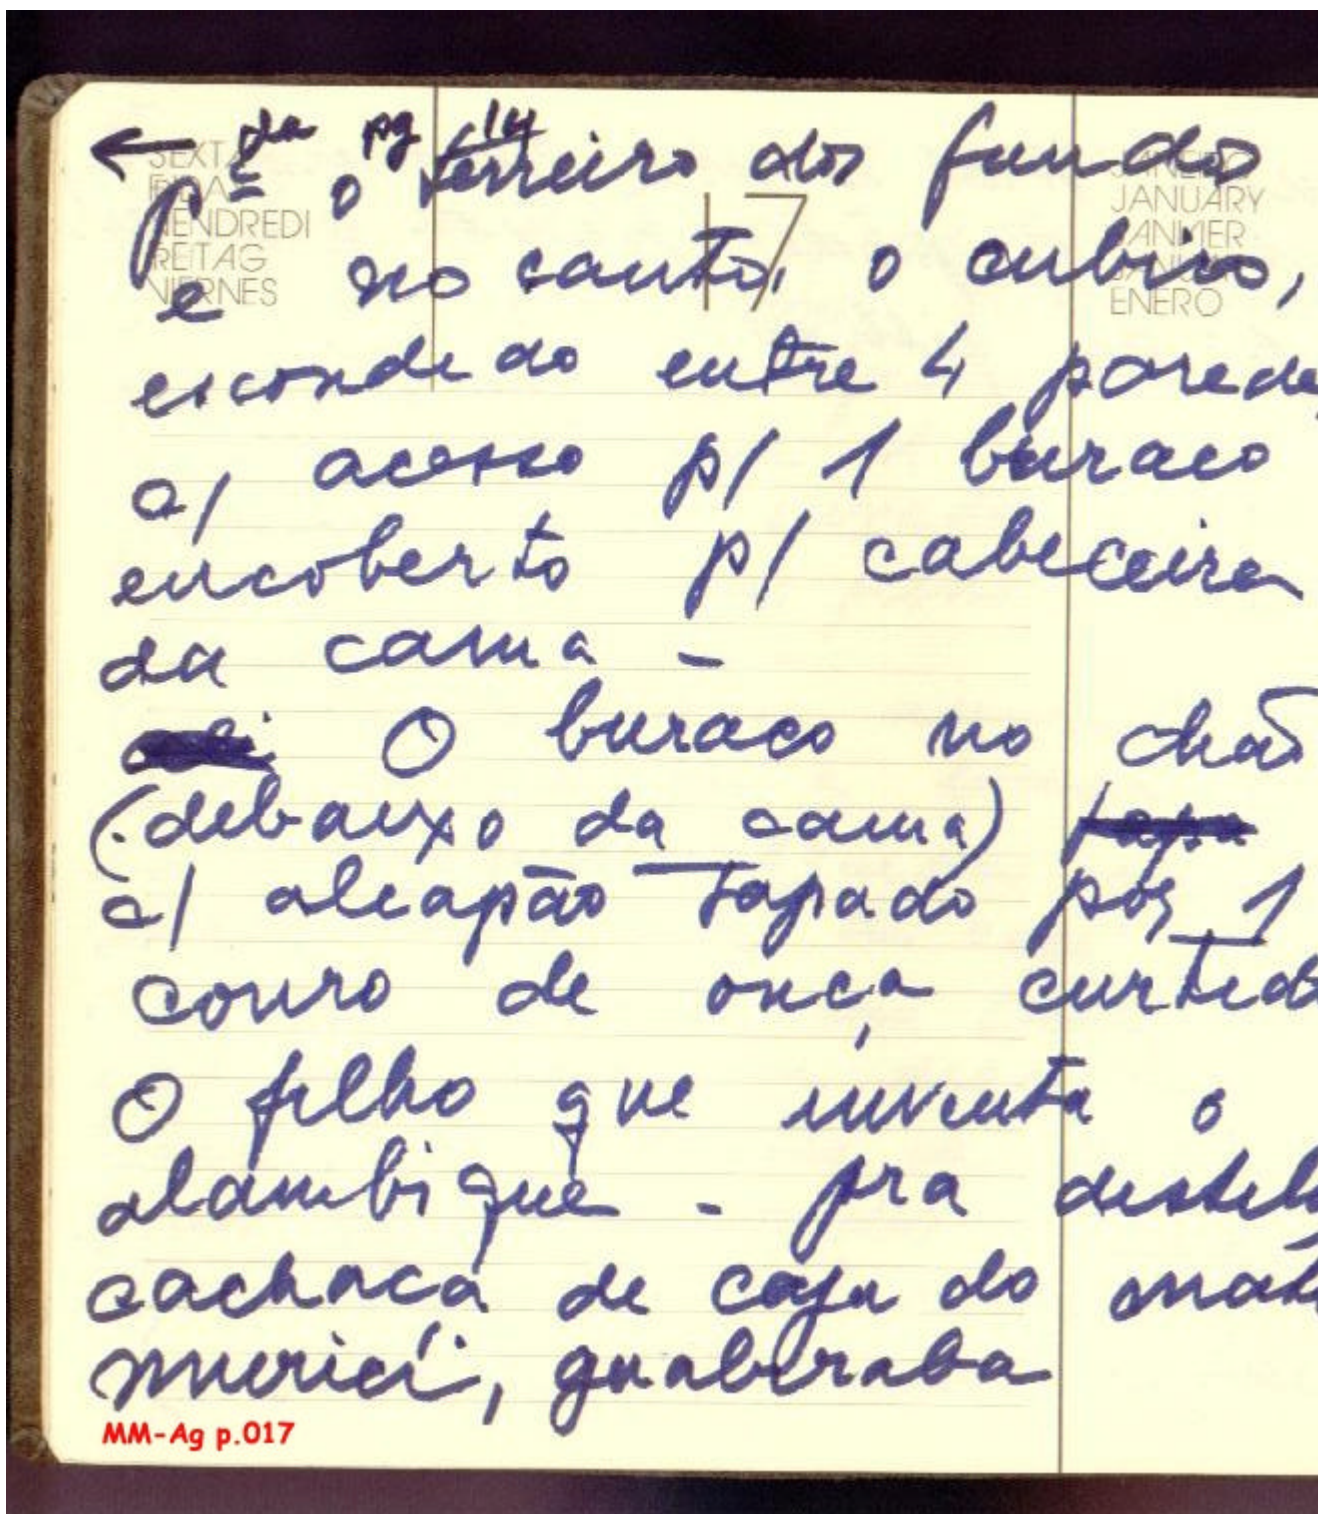 ← da pg 14
SEXTA
FRIDAY
VENDREDI
FREITAG
VIERNES
17
JANEIRO
JANUARY
JANVIER
JANUAR
ENERO
pª o terreiro dos fundos
e no canto, o cubico,
escondido entre 4 parede
c/ acesso p/ 1 buraco
encoberto p/ cabeceira
da cama -
O buraco no chão
(debaixo da cama)
c/ alcapão tapado por 1
couro de onça curtido
O filho que inventa o
alambique - pra destil
cachaça de caju do mat
muricí, guabiraba
MM-Ag p.017